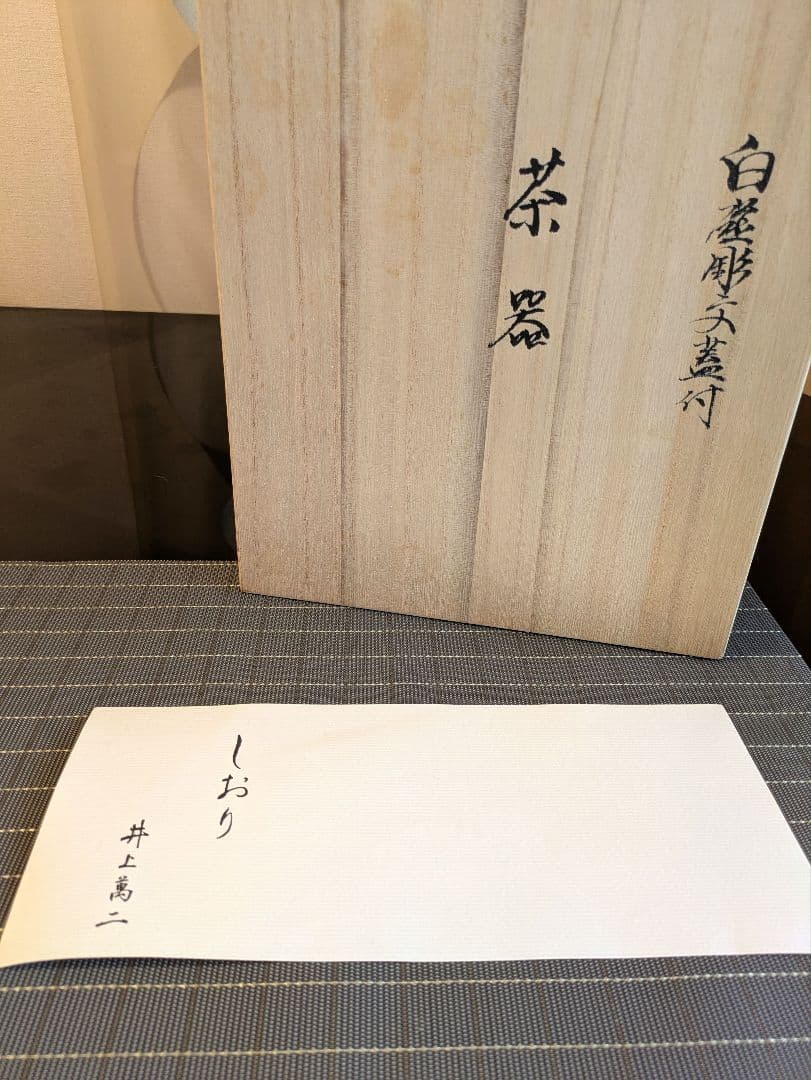 白瓷彫文蓋付
茶器
しおり
井上萬二